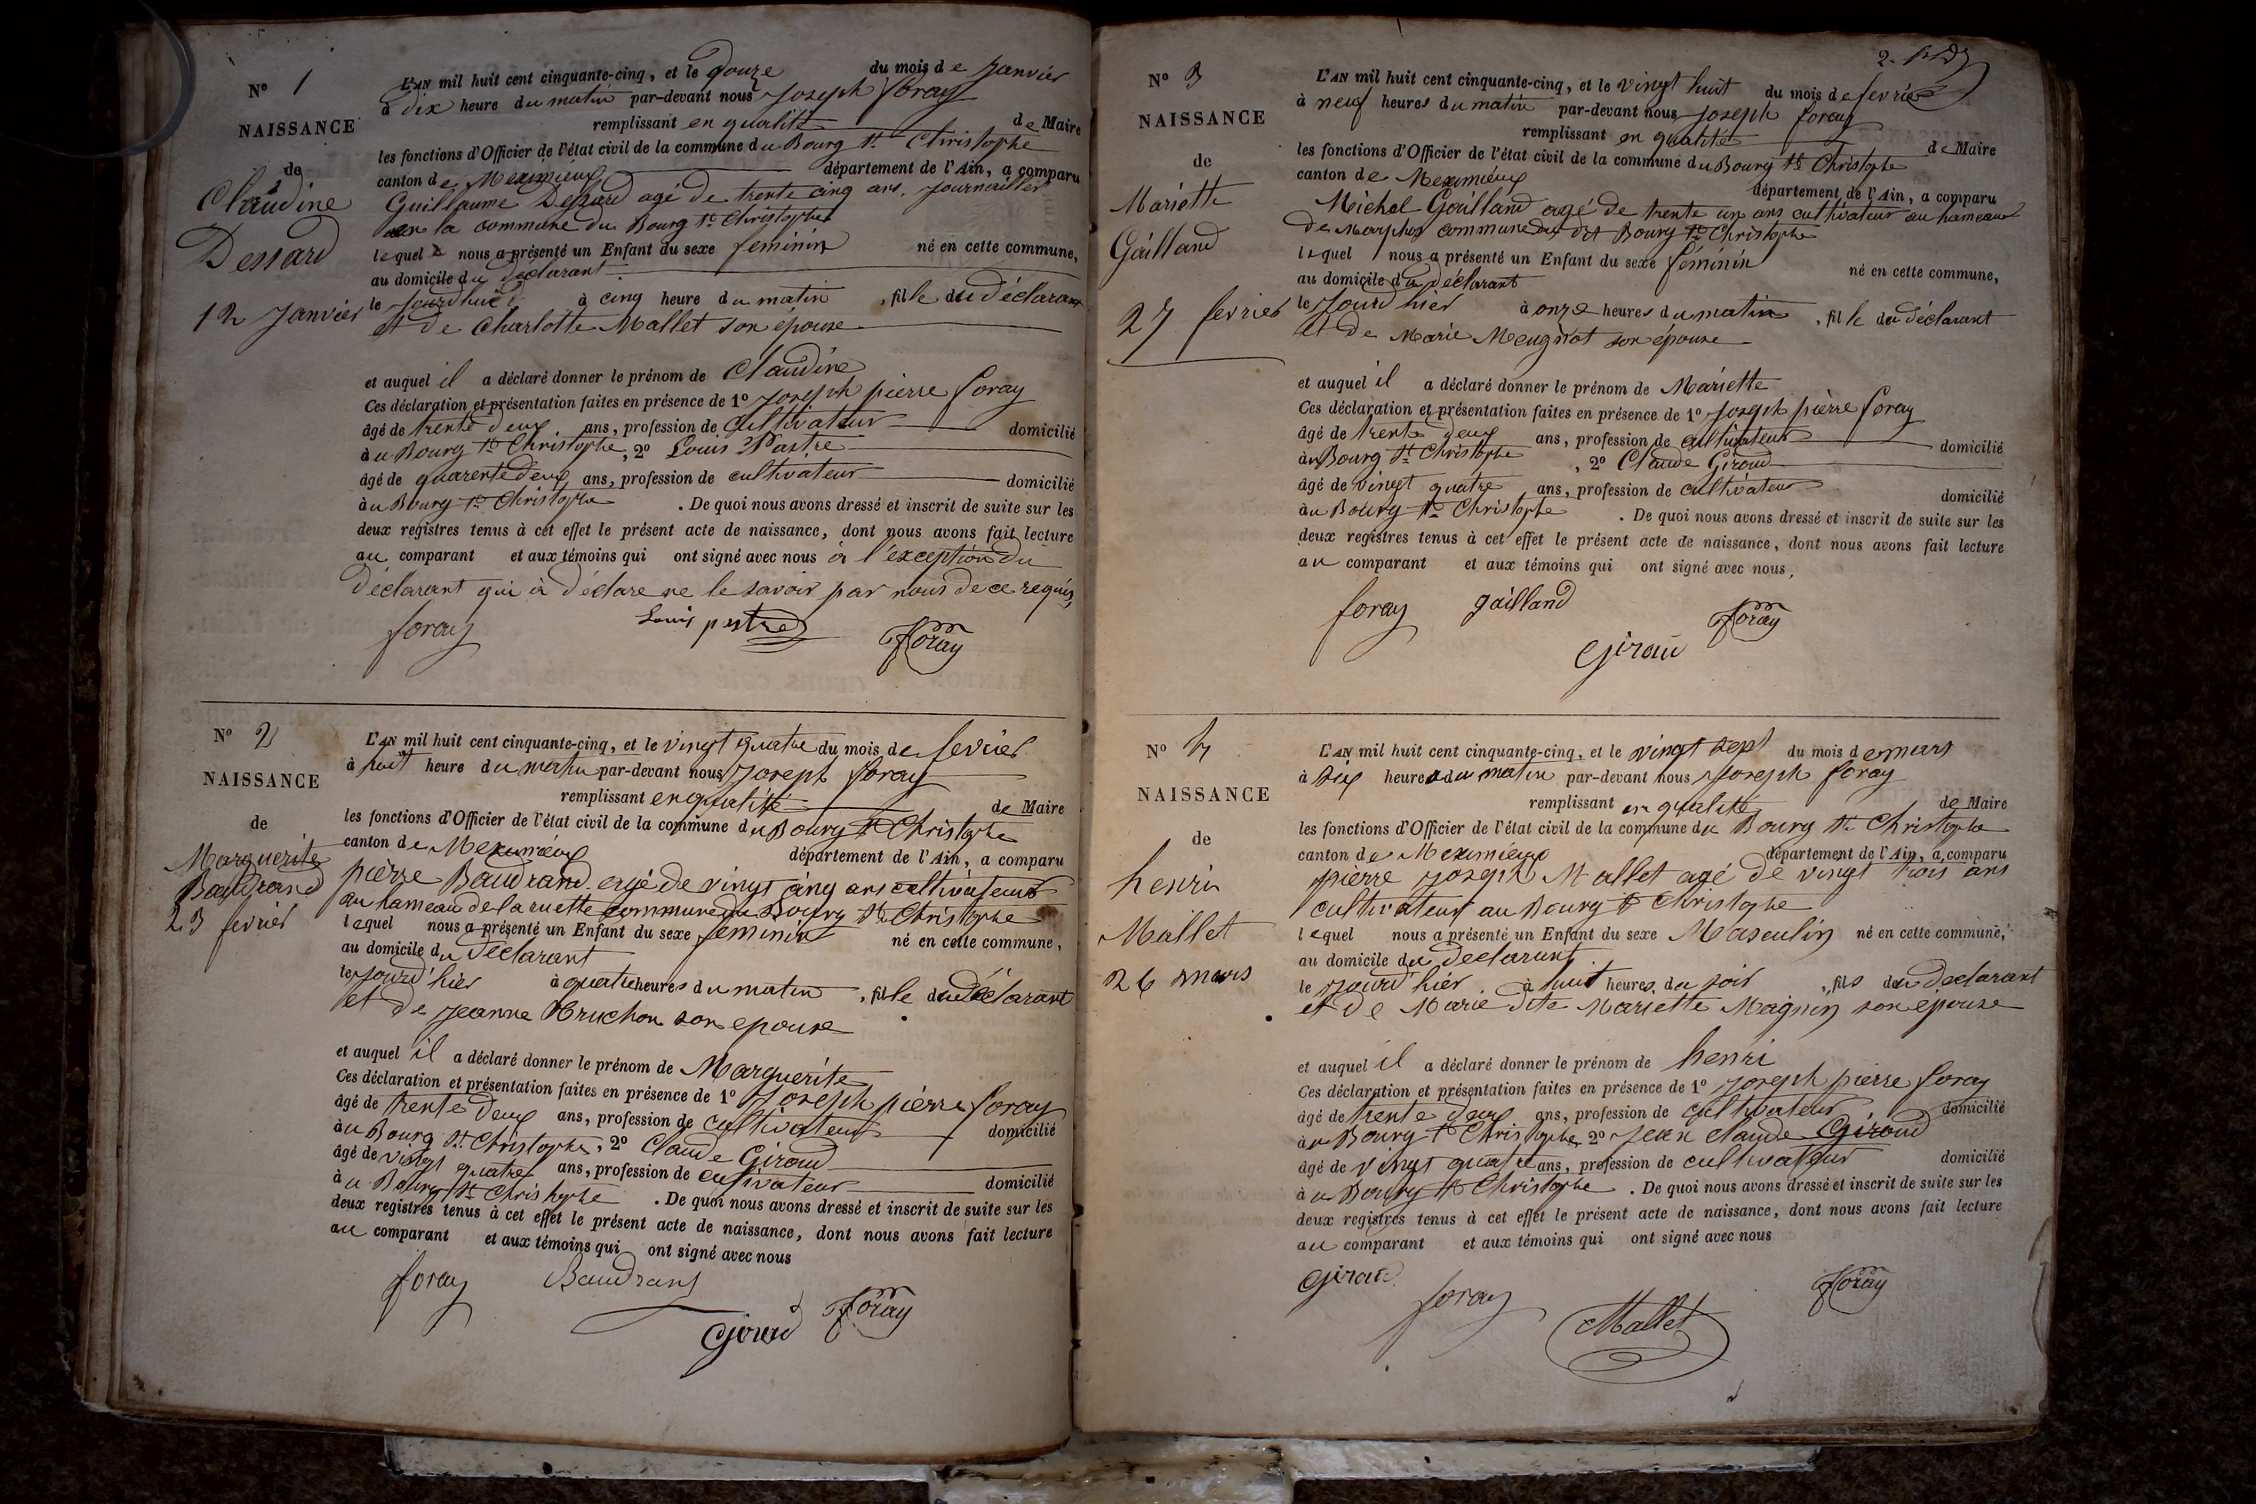 N° 1
NAISSANCE
de
Claudine
Dessard
12 Janvier
L'AN mil huit cent cinquante-cinq, et le douze du mois de Janvier
à dix heure du matin par-devant nous Joseph foray
remplissant en qualité de Maire
les fonctions d'Officier de l'état civil de la commune du Bourg St Christophe
canton de Meximieux département de l'Ain, a comparu
Guillaume Dessard agé de trente cinq ans. Journailler
en la commune du Bourg St Christophe
lequel nous a présenté un Enfant du sexe feminin né en cette commune,
au domicile du déclarant
le Jourdhui à cinq heure du matin, fille du déclarant
et de Charlotte Mallet son épouse
et auquel il a déclaré donner le prénom de Claudine
Ces déclaration et présentation faites en présence de 1° Joseph pierre foray
âgé de trente deux ans, profession de Cultivateur domicilié
à u Bourg St Christophe, 2° Louis Pastre
âgé de quarente deux ans, profession de cultivateur domicilié
à u Bourg St Christophe. De quoi nous avons dressé et inscrit de suite sur les
deux registres tenus à cet effet le présent acte de naissance, dont nous avons fait lecture
au comparant et aux témoins qui ont signé avec nous à l'exception du
déclarant qui à déclare ne le savoir par nous de ce requis,
foray Louis pestre foray
N° 2
NAISSANCE
de
Marguerite
Baudrand
23 fevrier
L'AN mil huit cent cinquante-cinq, et le vingt quatre du mois de fevrier
à huit heure du matin par-devant nous Joseph foray
remplissant en qualité de Maire
les fonctions d'Officier de l'état civil de la commune du Bourg St Christophe
canton de Meximieux département de l'Ain, a comparu
pierre Baudrand agé de vingt cinq ans cultivateur
au hameau de la ruette commune du Bourg St Christophe
lequel nous a présenté un Enfant du sexe feminin né en cette commune,
au domicile du déclarant
le Jourd'hier à quatre heures du matin, fille du déclarant
et de Jeanne Bruchon son epouse
et auquel il a déclaré donner le prénom de Marguerite
Ces déclaration et présentation faites en présence de 1° Joseph pierre foray
âgé de trente deux ans, profession de cultivateur domicilié
à u Bourg St Christophe, 2° Claude Giroud
âgé de vingt quatre ans, profession de cultivateur domicilié
à u Bourg St Christophe. De quoi nous avons dressé et inscrit de suite sur les
deux registres tenus à cet effet le présent acte de naissance, dont nous avons fait lecture
au comparant et aux témoins qui ont signé avec nous
foray Baudrand foray
Giroud
N° 3
NAISSANCE
de
Mariette
Gailland
27 fevrier
L'AN mil huit cent cinquante-cinq, et le vingt huit du mois de fevrier
à neuf heures du matin par-devant nous Joseph foray
remplissant en qualité de Maire
les fonctions d'Officier de l'état civil de la commune du Bourg St Christophe
canton de Meximieux département de l'Ain, a comparu
Michel Gailland agé de trente un ans cultivateur au hameau
de commune du dit Bourg St Christophe
lequel nous a présenté un Enfant du sexe féminin né en cette commune,
au domicile du déclarant
le Jourd hier à onze heures du matin, fille du déclarant
et de Marie Meugniot son épouse
et auquel il a déclaré donner le prénom de Mariette
Ces déclaration et présentation faites en présence de 1° Joseph pierre foray
âgé de trente deux ans, profession de cultivateur domicilié
à u Bourg St Christophe, 2° Claude Giroud
âgé de vingt quatre ans, profession de cultivateur domicilié
à u Bourg St Christophe. De quoi nous avons dressé et inscrit de suite sur les
deux registres tenus à cet effet le présent acte de naissance, dont nous avons fait lecture
au comparant et aux témoins qui ont signé avec nous,
foray gailland foray
Giroud
N° 4
NAISSANCE
de
henri
Mallet
26 mars
L'AN mil huit cent cinquante-cinq, et le vingt sept du mois de mars
à six heure du matin par-devant nous Joseph foray
remplissant en qualité de Maire
les fonctions d'Officier de l'état civil de la commune du Bourg St Christophe
canton de Meximieux département de l'Ain, a comparu
pierre Joseph Mallet agé de vingt trois ans
cultivateur au Bourg St Christophe
lequel nous a présenté un Enfant du sexe Masculin né en cette commune,
au domicile du declarant
le Jourd'hier à huit heures du soir, fils du declarant
et de Marie dite Mariette Magnin son epouse
et auquel il a déclaré donner le prénom de henri
Ces déclaration et présentation faites en présence de 1° Joseph pierre foray
âgé de trente deux ans, profession de cultivateur domicilié
à u Bourg St Christophe 2° Jean claude Giroud
âgé de vingt quatre ans, profession de cultivateur domicilié
à u Bourg St Christophe. De quoi nous avons dressé et inscrit de suite sur les
deux registres tenus à cet effet le présent acte de naissance, dont nous avons fait lecture
au comparant et aux témoins qui ont signé avec nous
Giroud foray Mallet foray